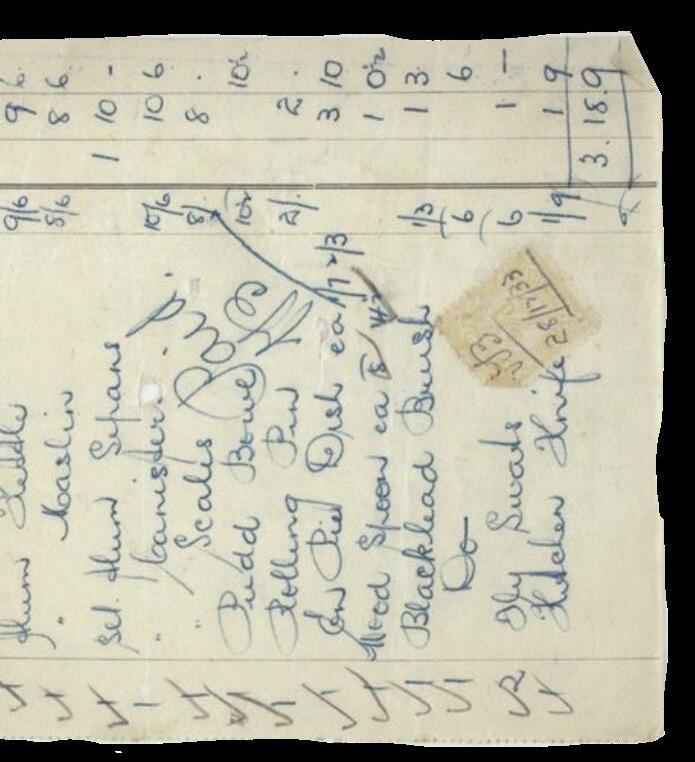 1 Alum Kettle 9/6 9 6
1 " Maslin 8/6 8 6
1 Set Alum Sepans 1 10 -
1 " Canister 10/6 10 6
1 " Scales 8/. 8 .
1 Pudd Bowl 10½ 10½
1 Rolling Pin 2/. 2 .
Pie Dish ea 1/7 2/3 3 10
Wood Spoon ea 1 0½
1 Blacklead Brush 1/3 1 3
1 Do 6 6
2 Fly Swats 6 1 -
1 Kitchen Knife 1/9 1 9
3.18.9
Paid
28/11/33